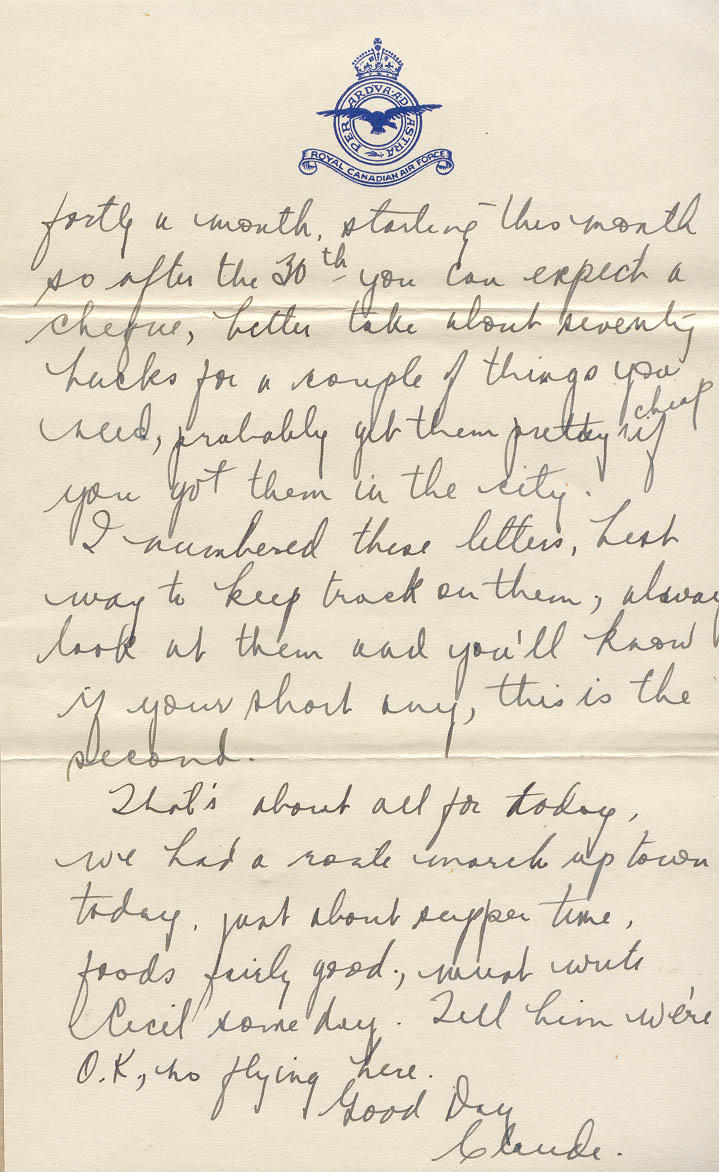 PER ARDVA AD ASTRA
ROYAL CANADIAN AIR FORCE
fortly a month, starting this month
so after the 30th you can expect a
cheque, better take about seventy
bucks for a couple of things you
need, probably get them pretty cheap if
you got them in the city.
I numbered these letters, best
way to keep track on them, alway
look at them and you'll know
if your short any, this is the
second.
That's about all for today,
we had a route march up town
today, just about supper time,
foods fairly good, must write
Cecil some day. Tell him we're
O.K., no flying here.
Good Day
Claude.